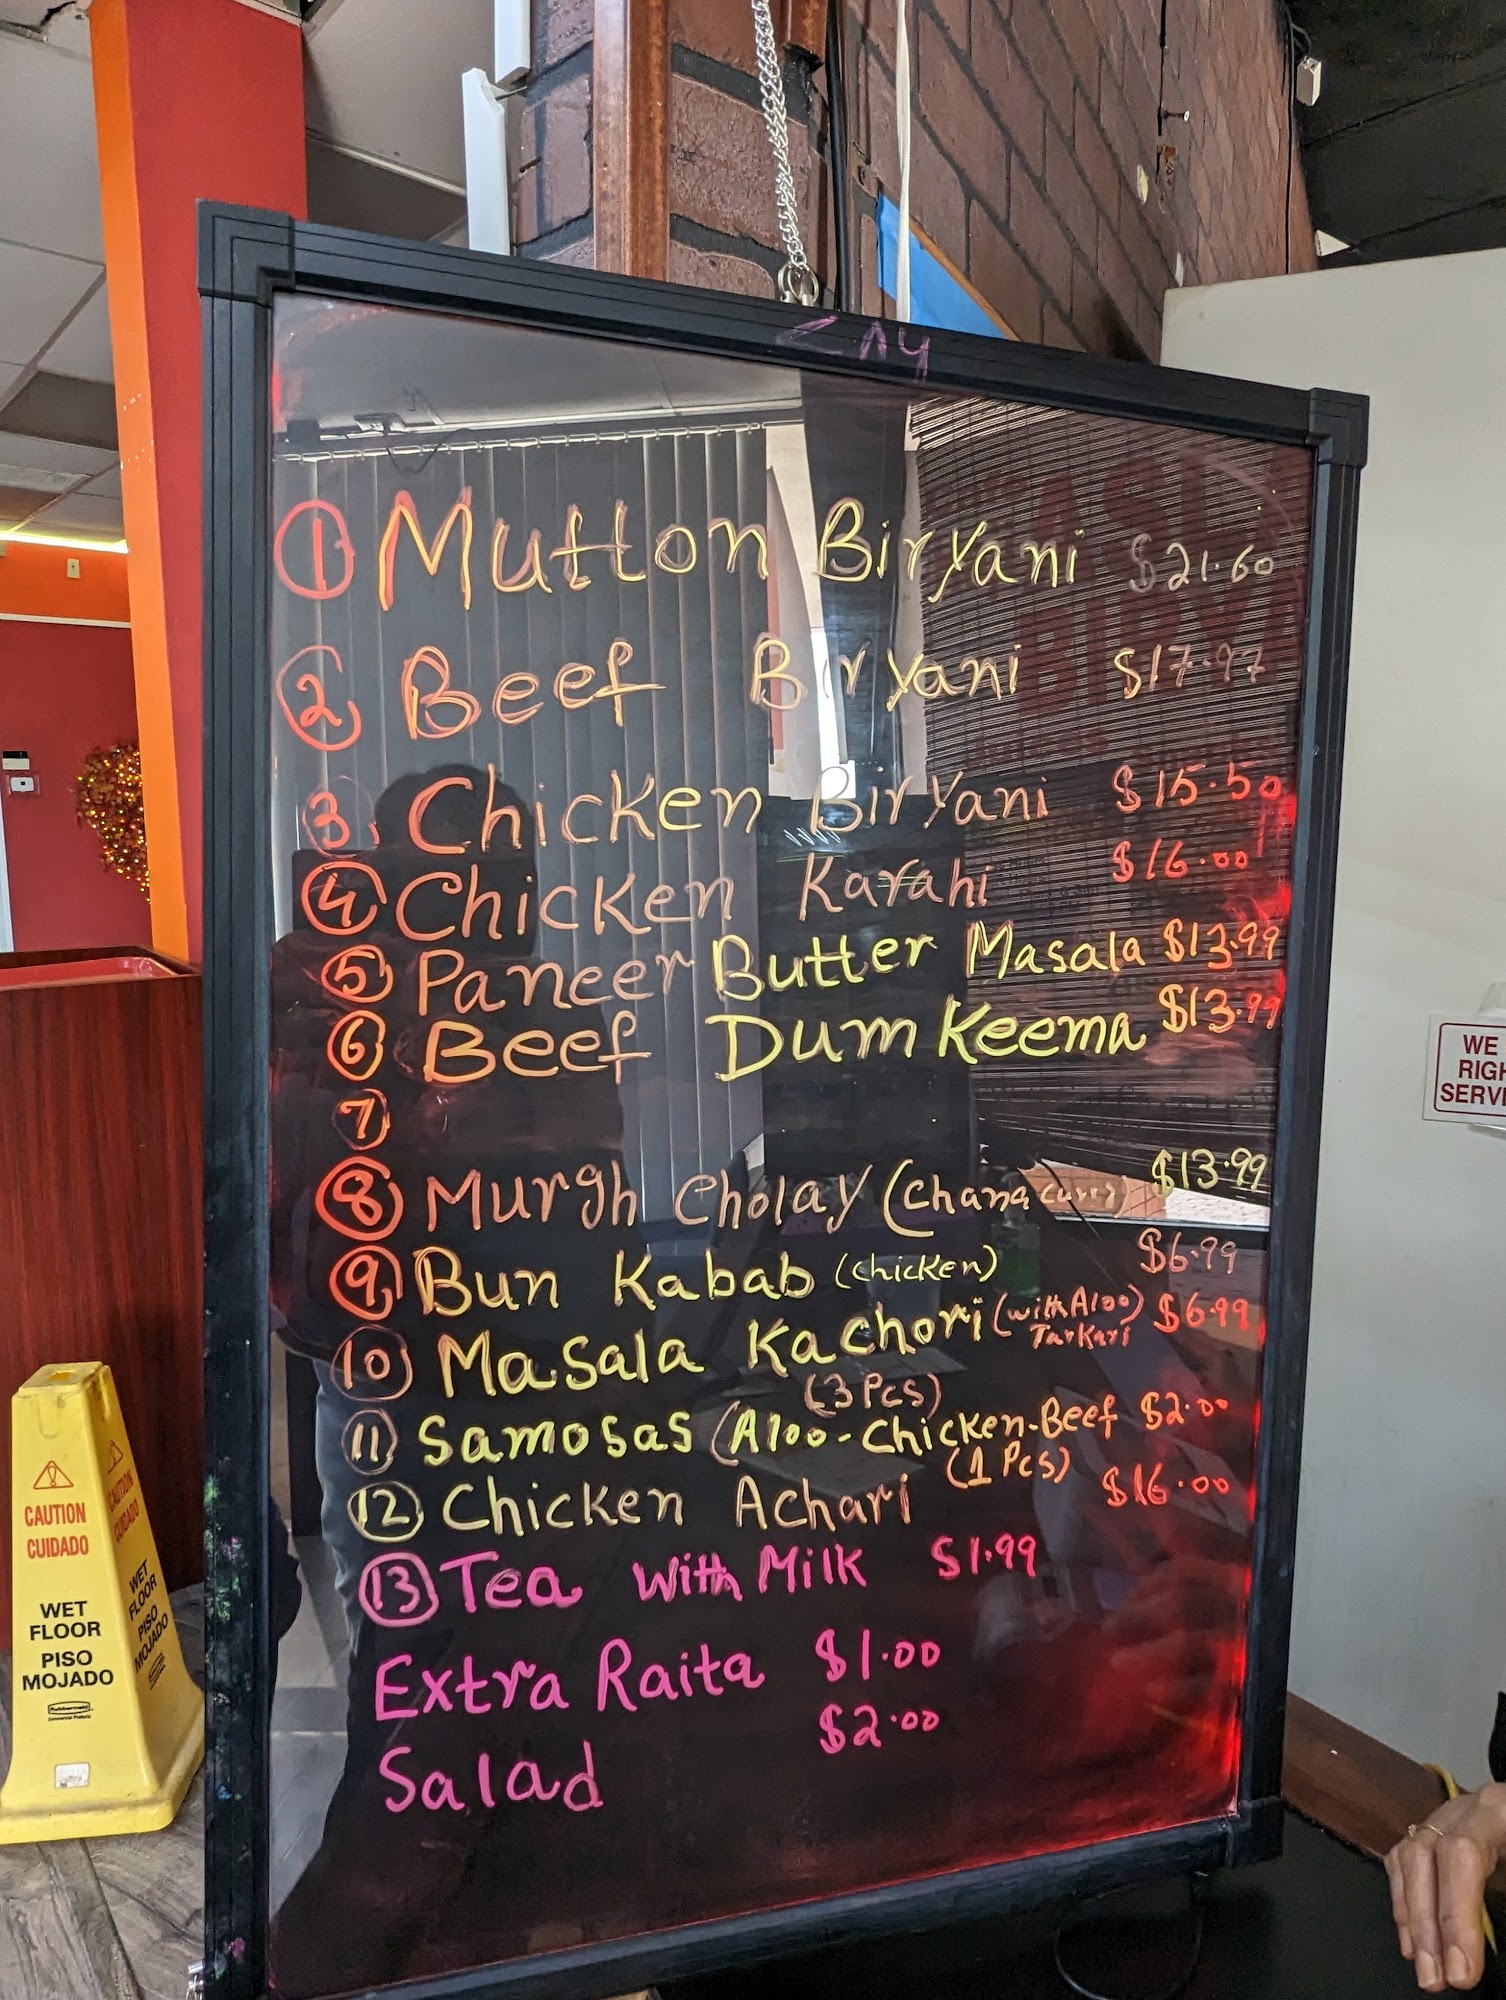 1 Mutton Biryani $21.60
2 Beef Biryani $17.97
3 Chicken Biryani $15.50
4 Chicken Karahi $16.00
5 Paneer Butter Masala $13.99
6 Beef Dum Keema $13.99
7
8 Murgh Cholay (Chana curry) $13.99
9 Bun Kabab (chicken) $6.99
10 Masala Kachori (with Aloo) $6.99
Tarkari
(3 Pcs)
11 Samosas (Aloo-Chicken-Beef $2.00
(1 Pcs)
12 Chicken Achari $16.00
13 Tea with Milk $1.99
Extra Raita $1.00
Salad $2.00
CAUTION
CUIDADO
WET
FLOOR
PISO
MOJADO
Rubbermaid
CAUTION
CUIDADO
WET
FLOOR
PISO
MOJADO
WE
RIGH
SERV